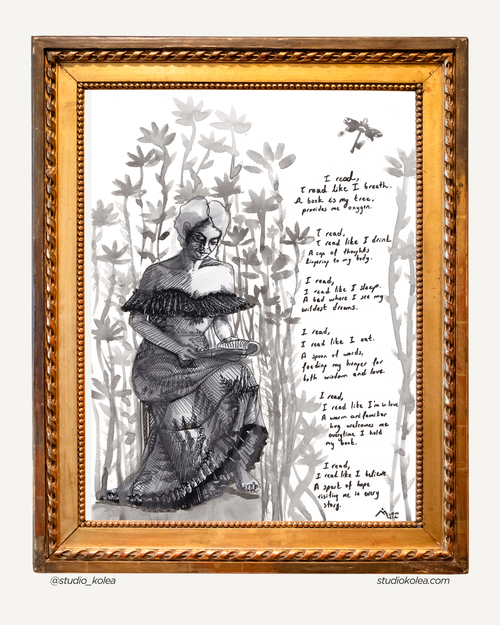 I read,
I read like I breath.
A book is my tree.
provides me oxygen.
I read,
I read like I drink
A cup of thoughts
lingering to my body.
I read,
I read like I sleep.
A bed where I see my
wildest dreams.
I read,
I read like I eat.
A spoon of words,
feeding my hunger for
both wisdom and love.
I read,
I read like I'm in love
A warm and familiar
hug welcomes me
everytime I hold
my book.
I read,
I read like I believe.
A spirt of hope
visiting me in every
story.
@studio_kolea
studiokolea.com